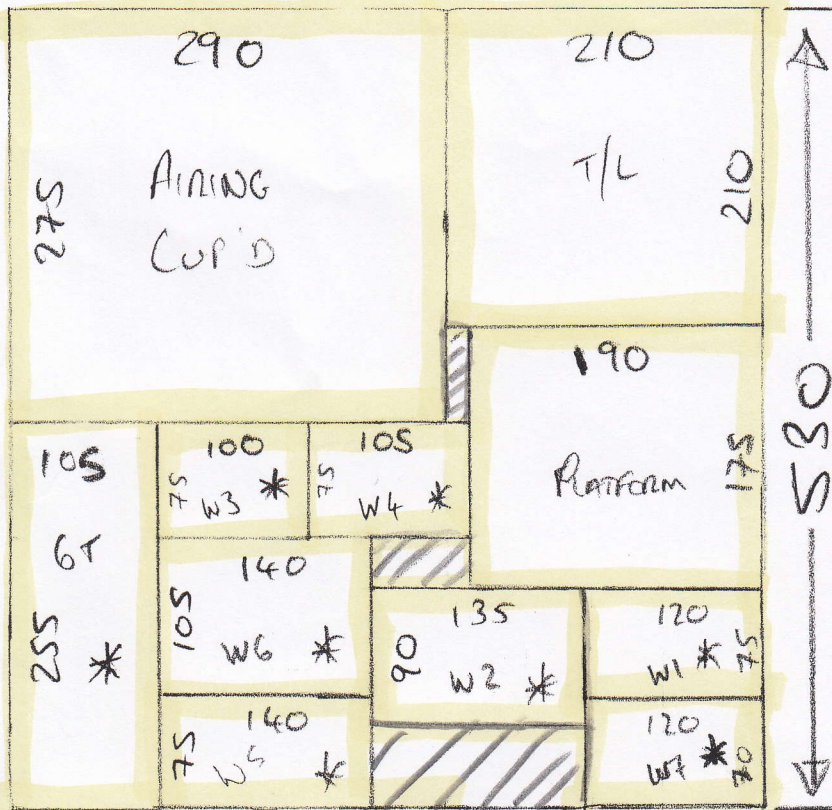 290
275
AIRING
CUP'D
210
T/L
210
530
190
PLATFORM
175
105
6T
255 *
100
75
W3 *
105
75
W4 *
140
105
W6 *
135
90
W2 *
120
W1 *
75
140
75
W5 *
120
W7 *
70